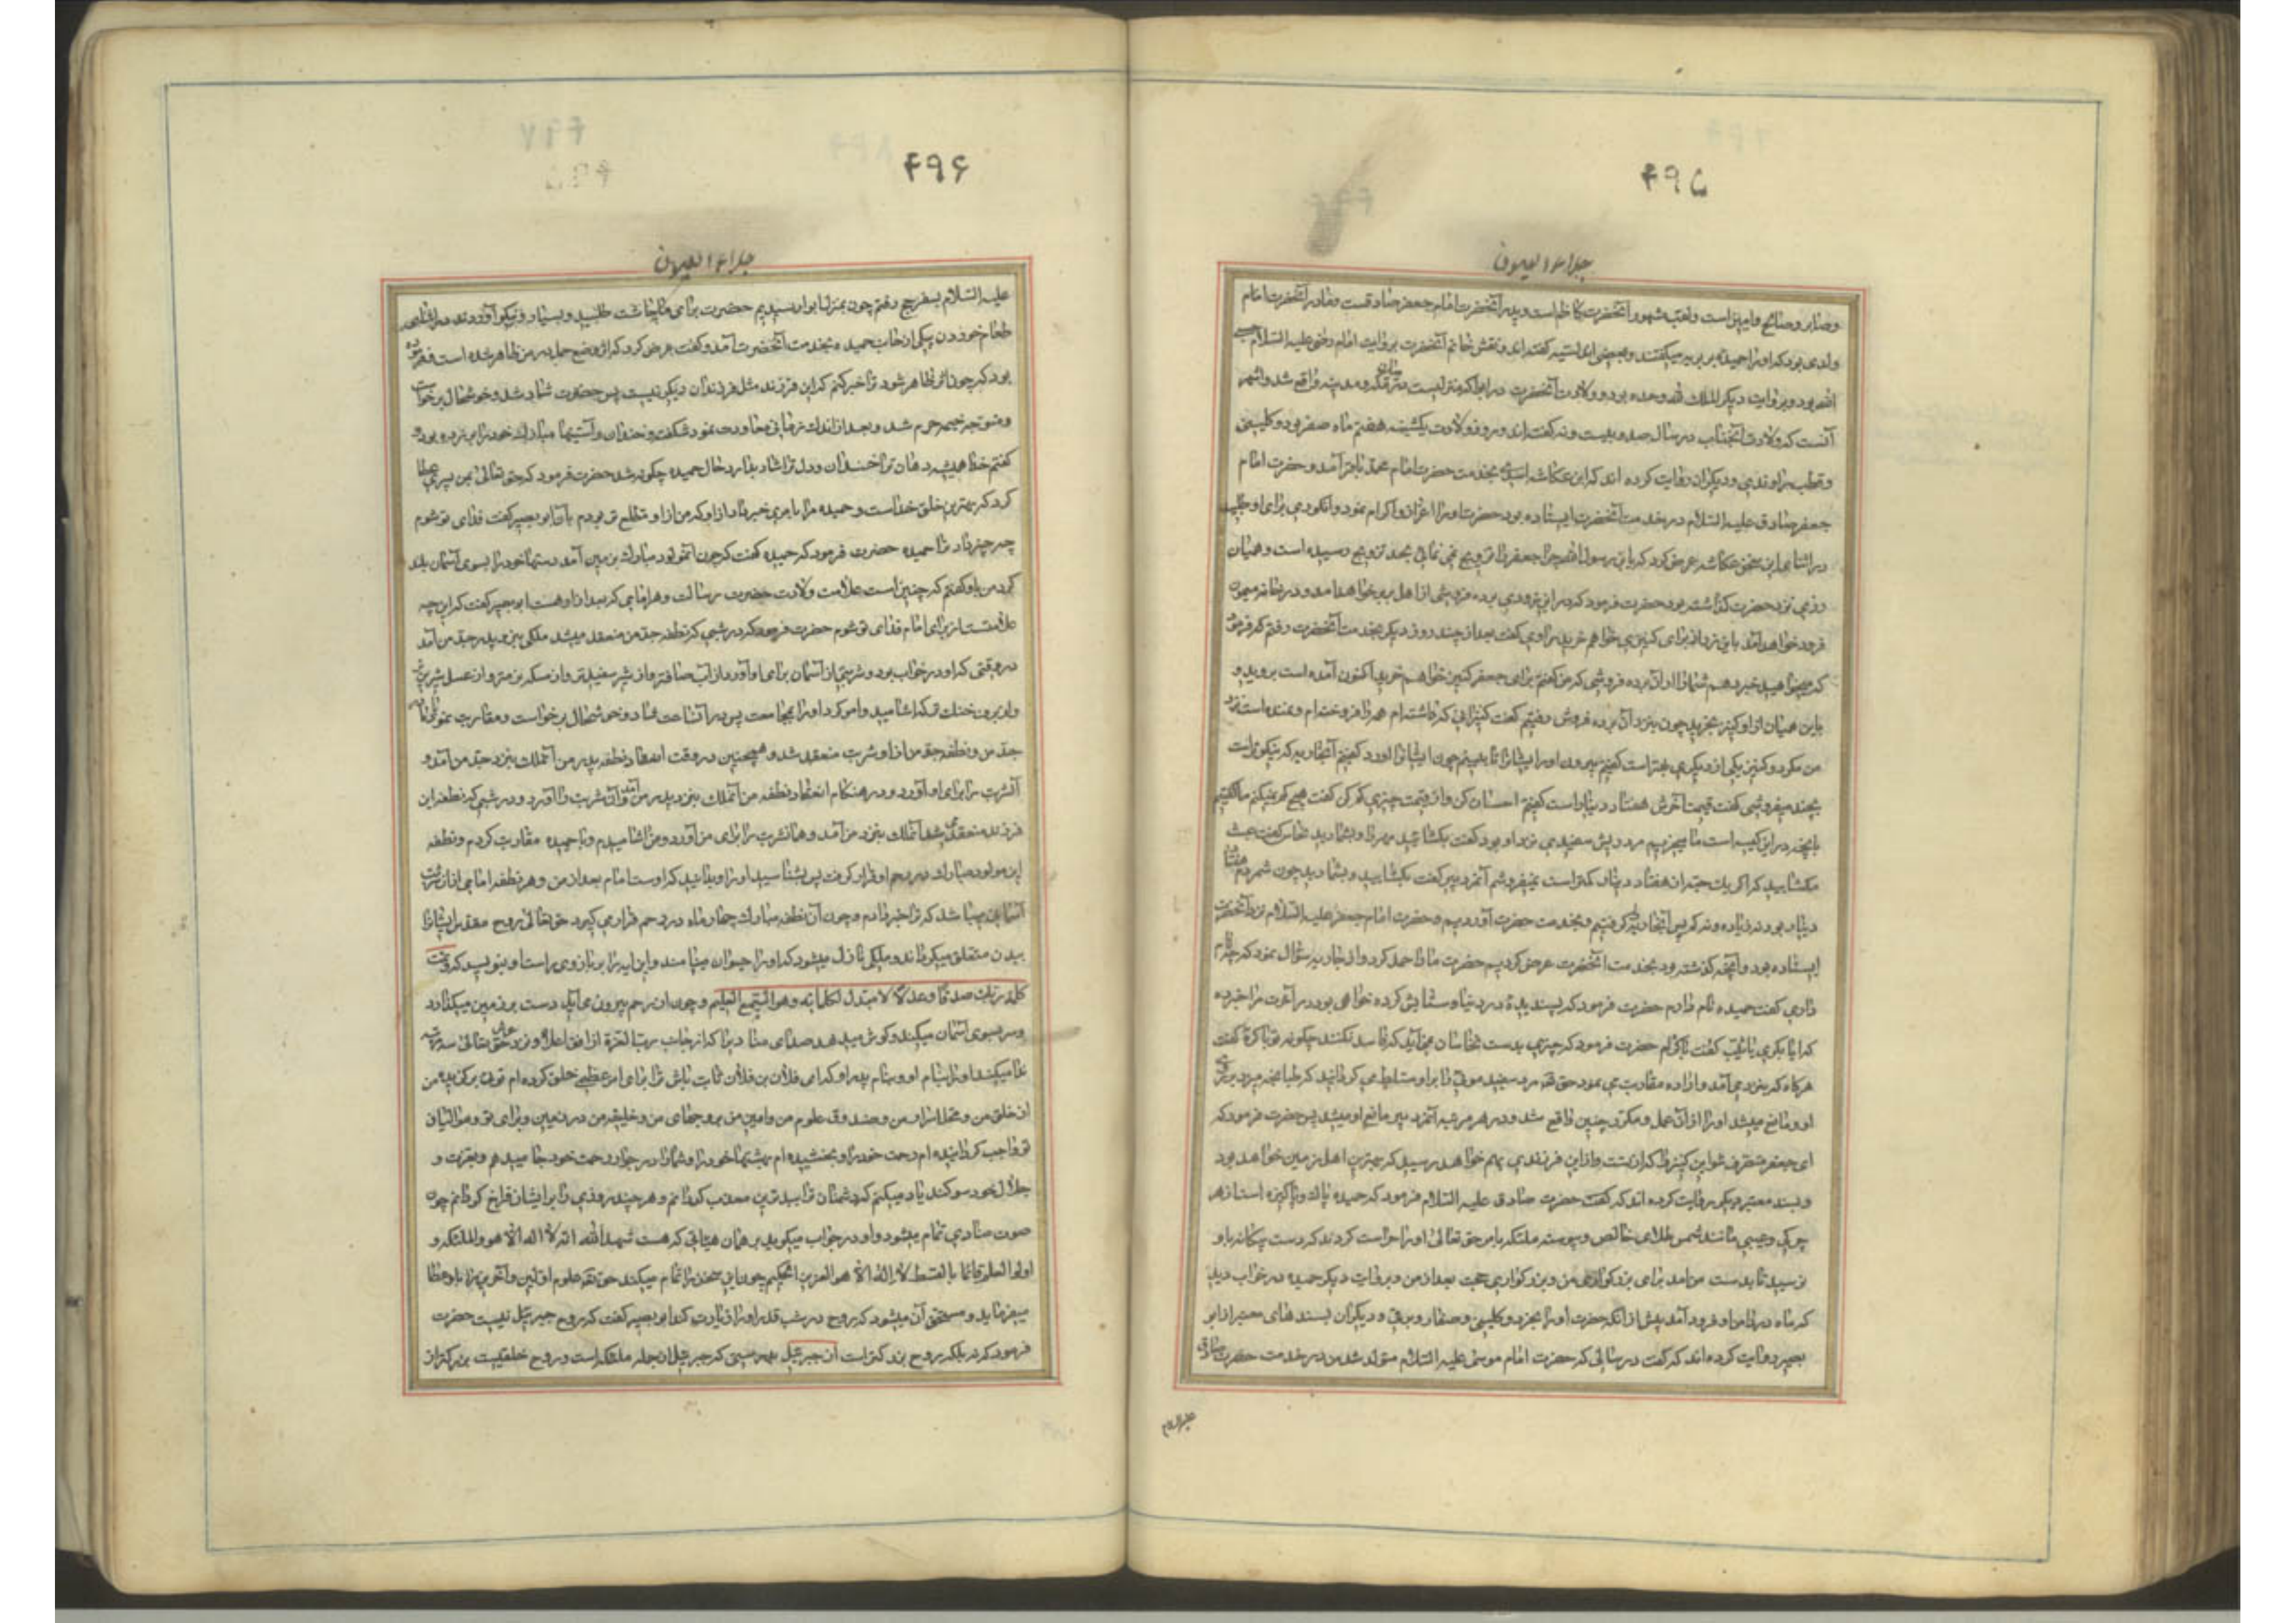 ۴۹۵
جلاء العیون
وصابر و صالح و امین است و لقب مشهور آنحضرت کاظم است و پدر آنحضرت امام جعفر صادقست و مادر آنحضرت امام
ولدی بود که او را حمیده بربریه میگفتند و بعضی اندلسیه گفته‌اند و نقش خاتم آنحضرت بروایت امام رضا علیه السلام حسبی
الله بود و بروایت دیگر الملک لله وحده بود و ولادت آنحضرت در ابوا که منزلیست میان مکه و مدینه واقع شد و اشهر
آنست که ولادت آنجناب در سال صد و بیست و نه گفته‌اند و روز ولادت یکشنبه هفتم ماه صفر بود و کلینی
و قطب راوندی و دیگران روایت کرده اند که ابن عکاشه اسدی بخدمت حضرت امام محمد باقر آمد و حضرت امام
جعفر صادق علیه السلام در خدمت آنحضرت ایستاده بود حضرت او را اعزاز و اکرام نمود و انگوری برای او طلبید
در اثنای این سخن عکاشه عرض کرد که یابن رسول الله چرا جعفر را تزویج نمی نمائی بحد تزویج رسیده است و همیان
زری نزد حضرت گذاشته بود حضرت فرمود که در این زودی برده فروشی از اهل بربر خواهد آمد و در خانه میمون
فرود خواهد آمد باین زر از برای او کنیزی خواهم خرید راوی گفت بعد از چند روز دیگر بخدمت آنحضرت رفتم که فرمود
که میخواهید خبر دهم شما را از آن برده فروشی که من گفتم برای جعفر کنیز خواهم خرید اکنون آمده است بروید و
باین همیان از او کنیز بخرید چون بنزد آن برده فروش رفتیم گفت کنیزانی که داشته‌ام همه را فروخته‌ام و نمانده است نزد
من مگر دو کنیز یکی از دیگری بهتر است گفتیم بیرون آور ایشان را تا ببینیم چون ایشان را آورد گفتیم آنجاریه که نیکوتر است
بچند میفروشی گفت قیمت آخرش هفتاد دینار است گفتیم احسان کن و از قیمت چیزی کم کن گفت هیچ کم نمیکنم ما گفتیم
بآنچه در این کیسه است ما میخریم مرد ریش سفیدی نزد او بود گفت بگشائید مهر را و بشمارید نخاس گفت عبث
مگشایید که اگر یک حبه از هفتاد دینار کمتر است نمیفروشم آنمرد پیر گفت بگشایید و بشمارید چون شمردیم هفتاد
دینار بود نه زیاده و نه کم پس آنجاریه را گرفتیم و بخدمت حضرت آوردیم و حضرت امام جعفر علیه السلام نزد آنحضرت
ایستاده بود و آنچه گذشته بود بخدمت آنحضرت عرض کردیم حضرت ما را حمد کرد و از جاریه سؤال نمود که چه نام
داری گفت حمیده نام دارم حضرت فرمود که پسندیدهٔ در دنیا و ستایش کرده خواهی بود در آخرت مرا خبر ده
که آیا بکری یا ثیب گفت باکره‌ام حضرت فرمود که چیزی بدست نخاسان نمی آید که فاسد نکنند چگونه تو باکرهٔ گفت
هرگاه که بنزد من می آمد و اراده مقاربت می نمود حق تعالی مرد سفید موئی را بر او مسلط میگردانید که طپانچه میزد بر روی
او و مانع میشد او را از آن عمل و مکرر چنین واقع شد و در هر مرتبه آنمرد پیر مانع او میشد پس حضرت فرمود که
ای جعفر متصرف شو این کنیز را که از تست و از این فرزندی بهم خواهد رسید که بهترین اهل زمین خواهد بود
و بسند معتبر دیگر روایت کرده اند که گفت حضرت صادق علیه السلام فرمود که حمیده پاک و پاکیزه است از هر
چرکی و عیبی مانند شمس طلای خالص و پیوسته ملئکه بامر حق تعالی او را حراست کردند که دست بیگانه باو
نرسید تا بدست من آمد برای بزرگواری من و بزرگواری حجت بعد از من و بروایت دیگر حمیده در خواب دید
که ماه در دامن او فرود آمد پیش از آنکه حضرت او را بخرد و کلینی و صفار و برقی و دیگران بسندهای معتبر از ابو
بصیر روایت کرده اند که گفت در سالی که حضرت امام موسی علیه السلام متولد شد من در خدمت حضرت صادق
علیه السلام
۴۹۶
جلاء العیون
علیه السلام بسفر حج رفتم چون بمنزل ابوا رسیدیم حضرت برای ما چاشت طلبید و بسیار و نیکو آوردند در اثنای
طعام خوردن پیکی از جانب حمیده بخدمت آنحضرت آمد و گفت عرض کرد که اثر وضع حمل در من ظاهر شده است فرموده
بود که چون اثر ظاهر شود ترا خبر کنم که این فرزند مثل فرزندان دیگر نیست پس حضرت شاد شد و خوشحال برخواست
و متوجه خیمه حرم شد و بعد از اندک زمانی معاودت نمود شکفته و خندان و آستینها مبارک خود را بر زده بود
گفتم خدا همیشه دهان ترا خندان و دل ترا شاد بدارد حال حمیده چگونه شد حضرت فرمود که حق تعالی بمن پسری عطا
کرد که بهترین خلق خداست و حمیده مرا بامری خبر داد از او که من از او مطلع تر بودم بآن ابو بصیر گفت فدای تو شوم
چه چیز داد ترا حمیده حضرت فرمود که حمیده گفت که چون آنمولود مبارک بزمین آمد دستها خود را بسوی آسمان بلند
کرد من باو گفتم که چنین است علامت ولادت حضرت رسالت و هر امامی که بعد از او هست ابو بصیر گفت که این چه
علامتست از برای امام فدای تو شوم حضرت فرمود که در شبی که نطفه جد من منعقد میشد ملکی بنزد پدر جد من آمد
در وقتی که او در خواب بود و شربتی از آسمان برای او آورد از آب صافتر و از شیر سفیدتر و از مسکه نرمتر و از عسل شیرین تر
و از برف خنک تر که آشامید و امر کرد او را بمجامعت پس در آنساعت شاد و خوشحال برخواست و مقاربت نمود
جد من و نطفه جد من از او شربت منعقد شد و همچنین در وقت انعقاد نطفه پدر من آنملک بنزد جد من آمد و
آنشربت را برای او آورد و در هنگام انعقاد نطفه من آنملک بنزد پدر من آمد و آن شربت را آورد و در شبی که نطفه این
فرزند منعقد شد آنملک بنزد من آمد و همانشربت را برای من آورد و من آشامیدم و با حمیده مقاربت کردم و نطفه
این مولود مبارک در رحم او قرار گرفت پس بشناسید او را و بدانید که اوست امام بعد از من و هر نطفه امامی از آن شربت
آسمانی بهم میرسد که ترا خبر دادم و چون آن نطفه مبارک چهار ماه در رحم قرار می گیرد حق تعالی روح مقدس ایشان را
ببدن متعلق میگرداند و ملکی نازل میشود که او را حیوان مینامند و این آیه را بر بازوی راست او مینویسد که و تمت
کلمة ربک صدقا وعدلا لا مبدل لکلماته وهو السمیع العلیم و چون از رحم بیرون می آید دست بر زمین میگذارد
و سر بسوی آسمان میکند و گوش میدهد صدای منادیرا که از جانب رب العزة از افق اعلا و نزد عرش حق تعالی سه مرتبه
ندا میکند او را بنام او و بنام پدر او که ای فلان بن فلان ثابت باش ترا برای امر عظیمی خلق کرده‌ام توئی برگزیده من
از خلق من و محل اسرار من و صندوق علوم من و امین من بر وحی‌های من و خلیفه من در زمین و برای تو و موالیان
تو واجب گردانیده‌ام رحمت خود را و بخشیده‌ام بهشتها خود را و شما را در جوار رحمت خود جا میدهم و بعزت و
جلال خود سوگند یاد میکنم که دشمنان ترا ببدترین معذب گردانم و هر چند روزی را بر ایشان فراخ گردانم چون
صوت منادی تمام میشود او در جواب میگوید بر همان هیأتی که هست شهد الله انه لا اله الا هو والملئکة و
اولوا العلم قائما بالقسط لا اله الا هو العزیز الحکیم چون این سخن را تمام میکند حق تعالی علوم اولین و آخرین را باو عطا
میفرماید و مستحق آن میشود که روح در شب قدر او را زیارت کند ابو بصیر گفت که روح جبرئیل نیست حضرت
فرمود که نه بلکه روح بزرگتر است از جبرئیل بدرستی که جبرئیل از جمله ملئکه است و روح خلقیست بزرگتر از